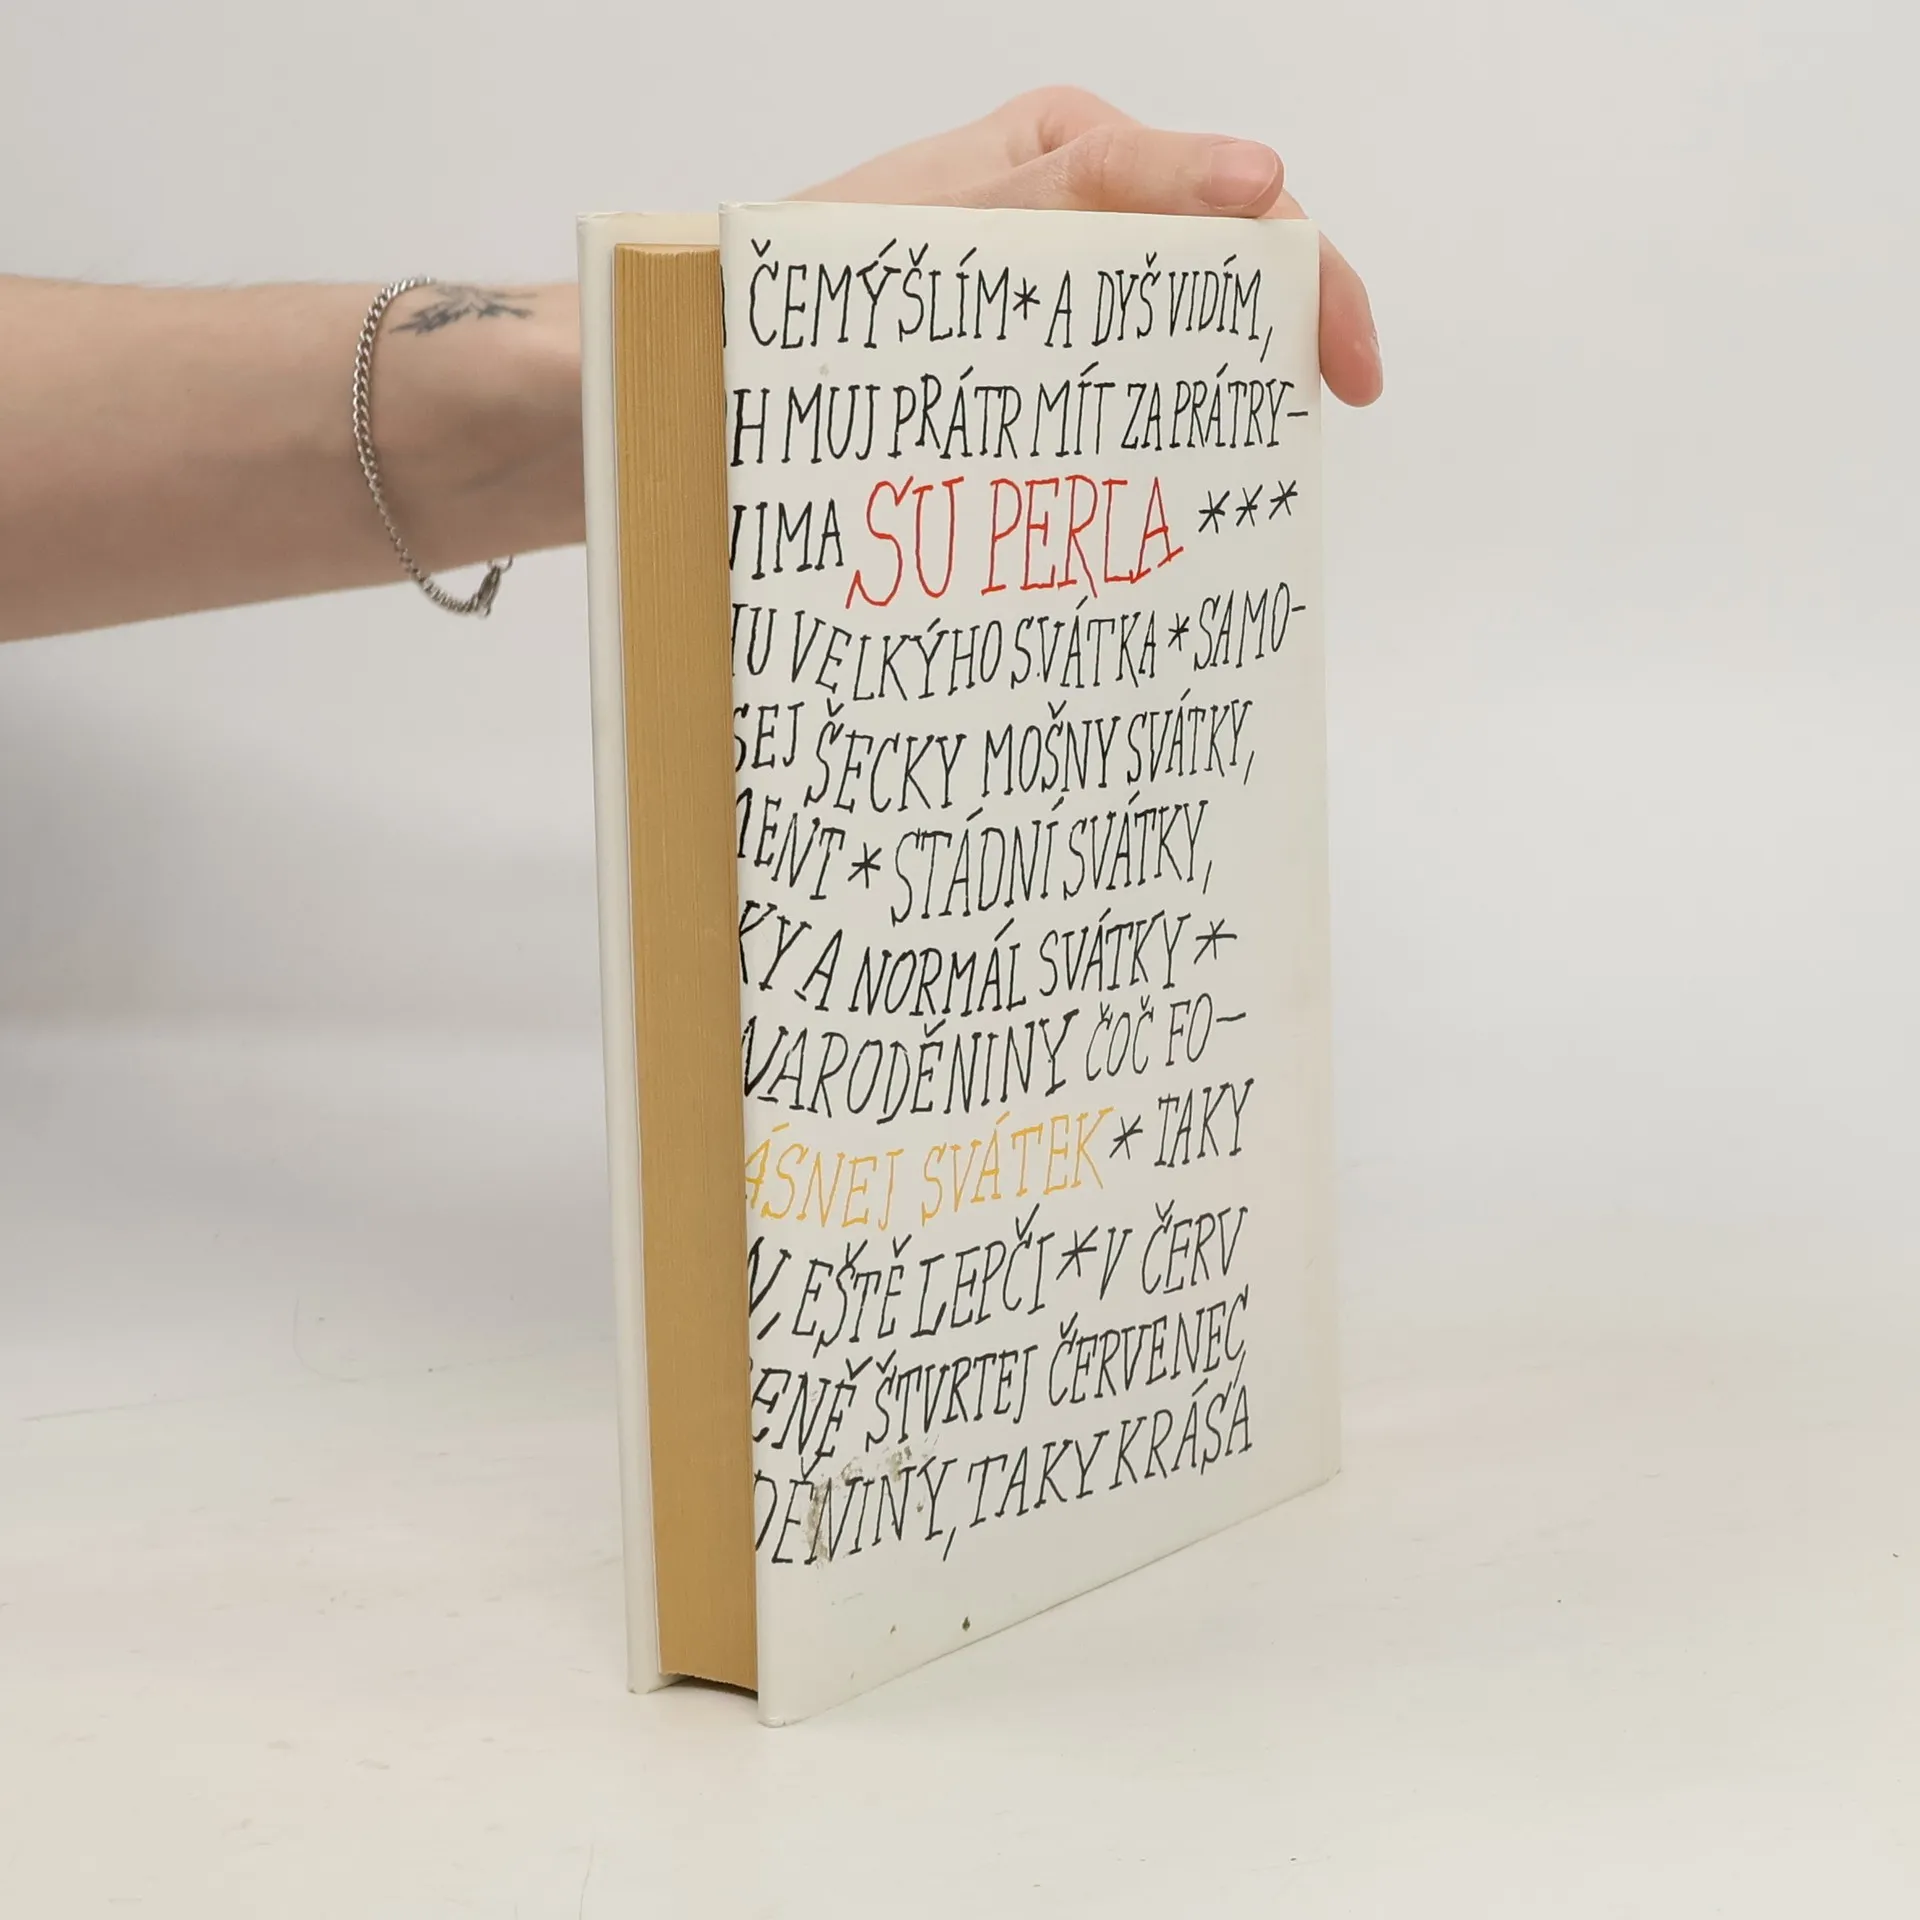 ČEMÝŠLÍM * A DYŠ VIDÍM,
H MUJ PRÁTR MÍT ZA PRÁTRY–
IMA SU PERLA ***
U VELKÝHO SVÁTKA * SAMO–
SEJ ŠECKY MOŠNY SVÁTKY,
ENT * STÁDNÍ SVÁTKY,
KY A NORMÁL SVÁTKY *
NARODĚNINY ČOČ FO–
ÁSNEJ SVÁTEK * TAKY
N, EŠTĚ LEPČI * V ČERV
ENĚ ŠTVRTEJ ČERVENEC,
DĚNINY, TAKY KRÁSA